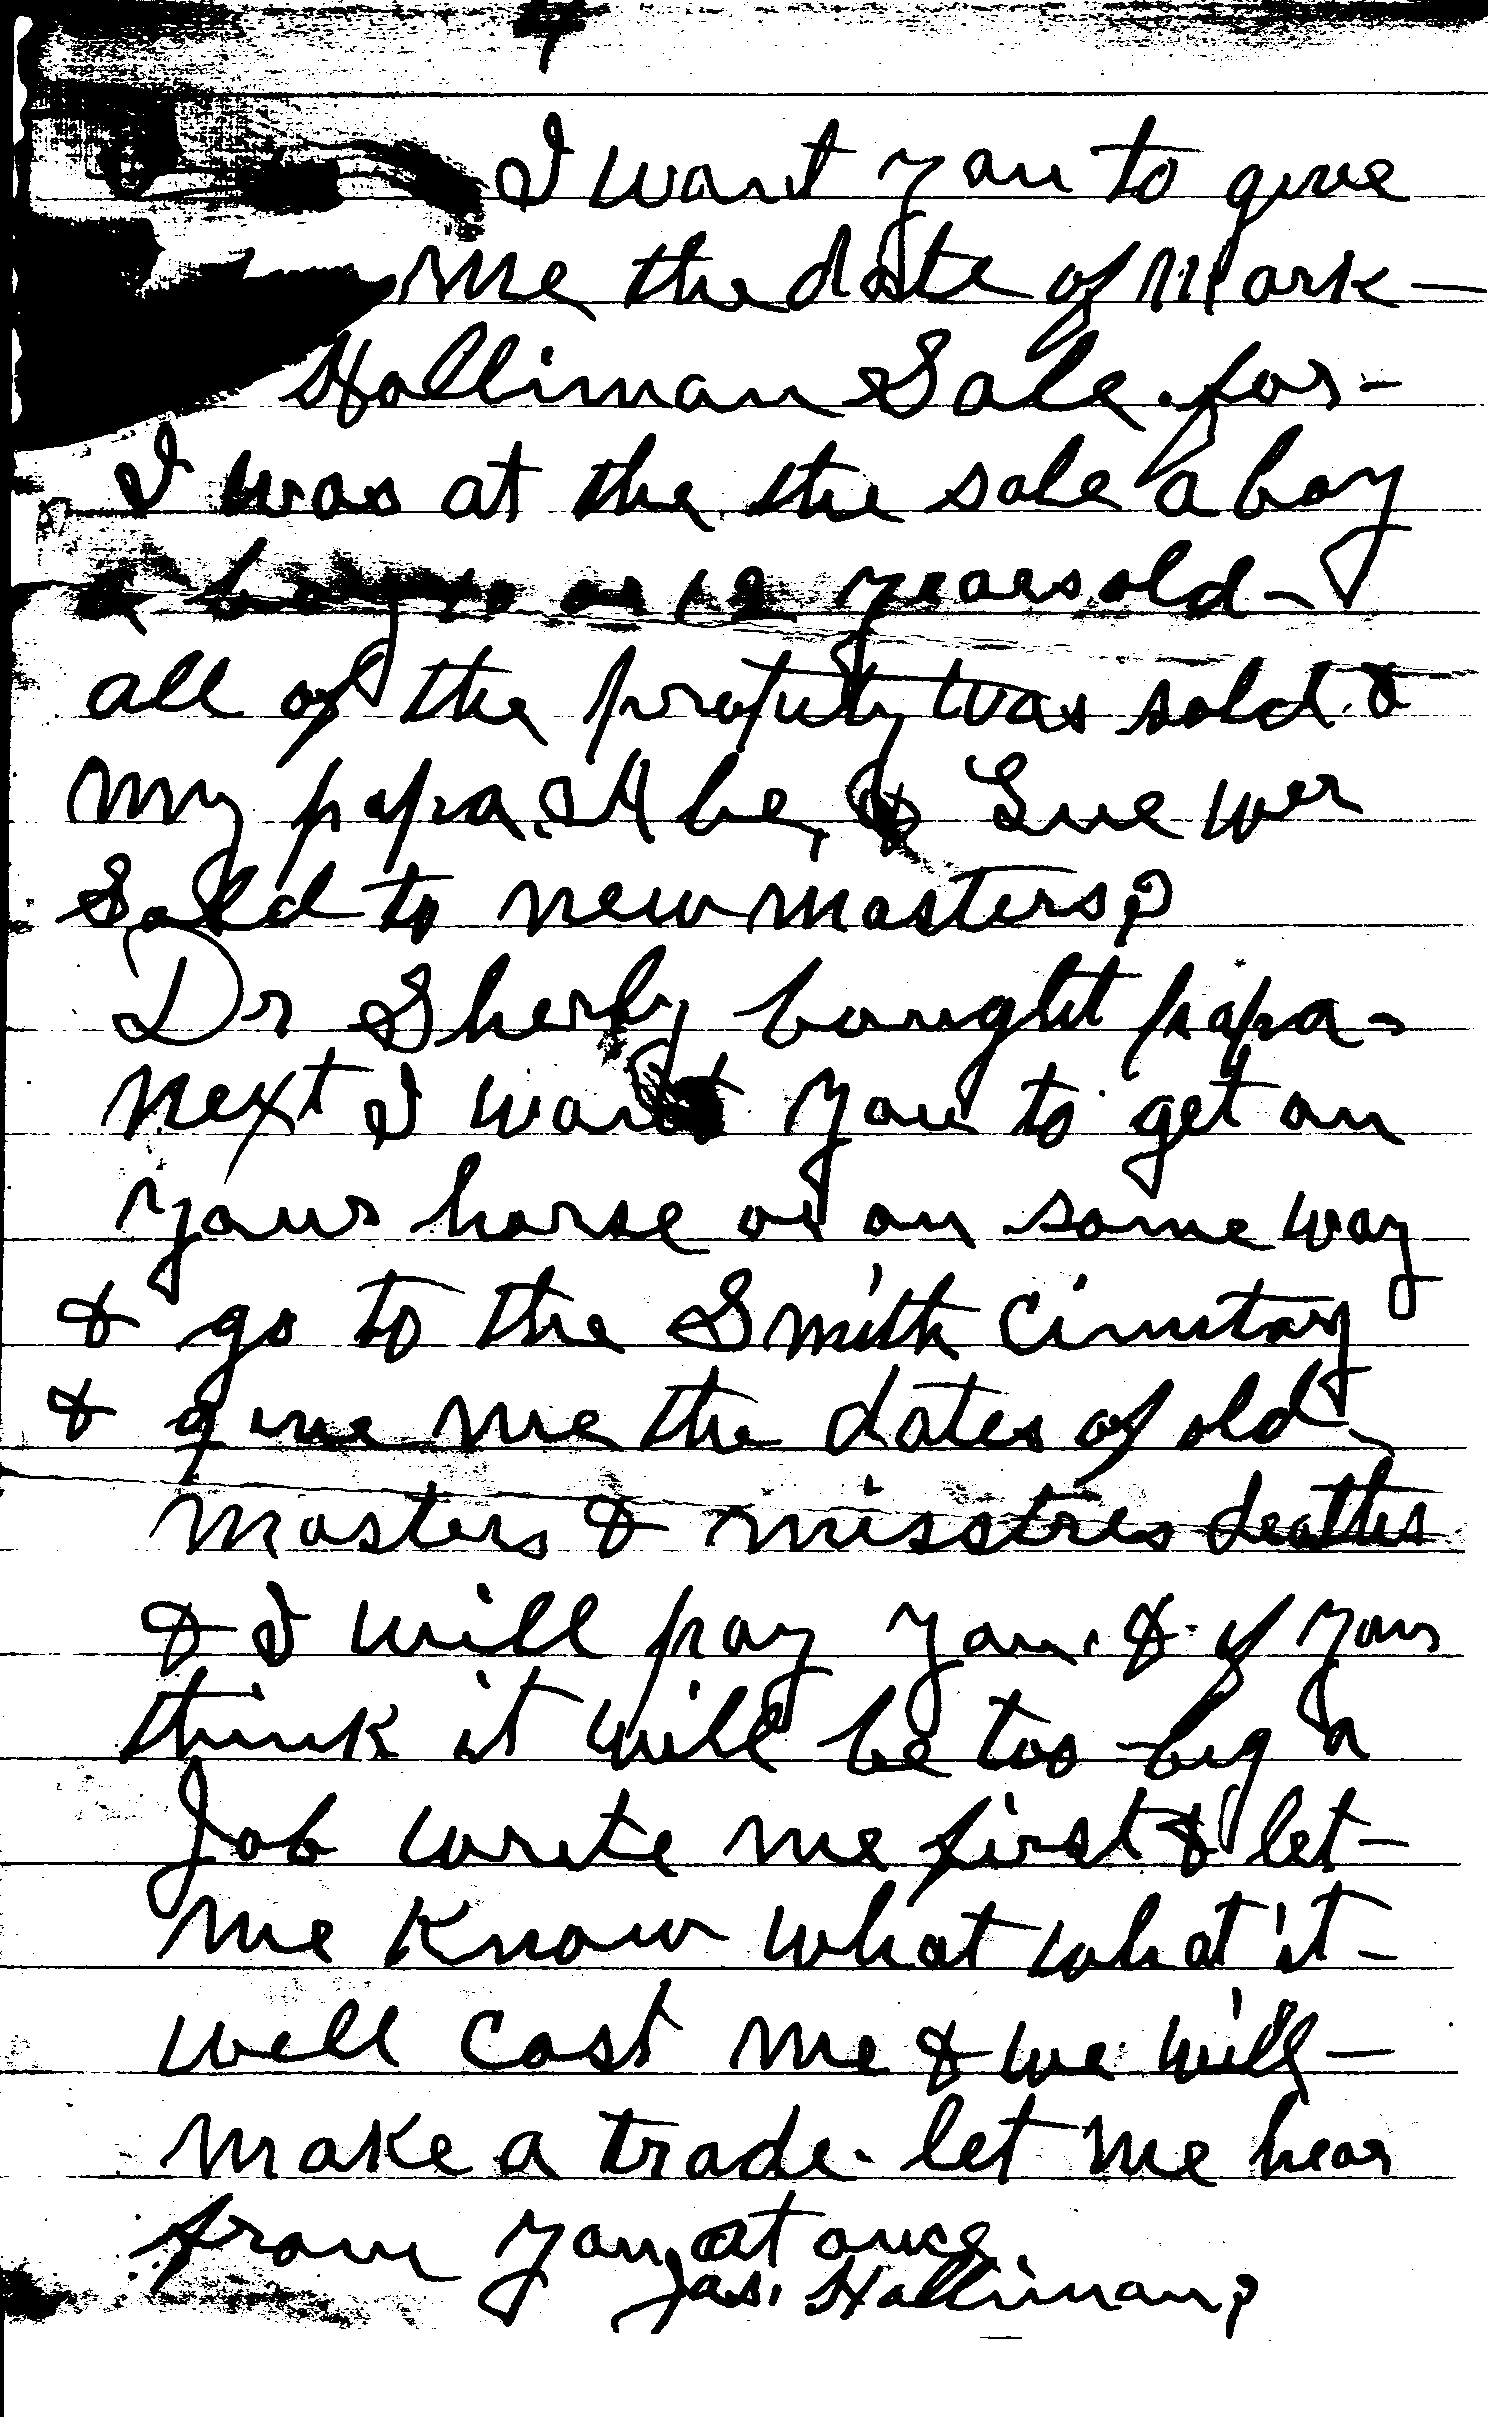 4
I want you to give
me the date of Mark-
Holliman Sale. for-
I was at the the sale a boy
a boy 10 or 12 years old-
all of the proputy was sold. &
my papa. Abe, & Sue wer
Sold to new masters?
Dr Sherly bought papa-
next I want you to get on
your horse or on some way
& go to the Smith Cimetary
& give me the dates of old-
masters & misstres deaths
& I will pay you. & if you
think it will be too big a
Job write me first & let-
me know what what it-
well cost me & we will-
make a trade. let me hear
from you at once
Jas. Holliman?